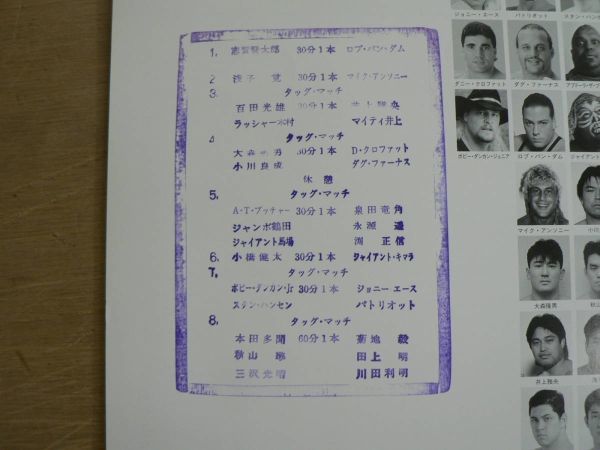 1. 志賀賢太郎 30分1本 ロブ・バン・ダム
2. 浅子 覚 30分1本 マイク・アンソニー
3. タッグ・マッチ
百田光雄 30分1本 井上雅央
ラッシャー木村 マイティ井上
4 タッグ・マッチ
大森隆男 30分1本 D・クロファット
小川良成 ダグ・ファーナス
休憩
5. タッグ・マッチ
A・T・ブッチャー 30分1本 泉田竜角
ジャンボ鶴田 永源 遥
ジャイアント馬場 渕 正信
6. 小橋健太 30分1本 ジャイアント・キマラ
7. タッグ・マッチ
ボビー・ダンカン・Jr 30分1本 ジョニー エース
スタン・ハンセン パトリオット
8. タッグ・マッチ
本田多聞 60分1本 菊地 毅
秋山 準 田上 明
三沢光晴 川田利明
ジョニー・エース パトリオット スタン・ハン
ダニー・クロファット ダグ・ファーナス
ボビー・ダンカン・ジュニア ロブ・バン・ダム ジャイアント
マイク・アンソニー 小川
大森隆男 秋山
井上雅央